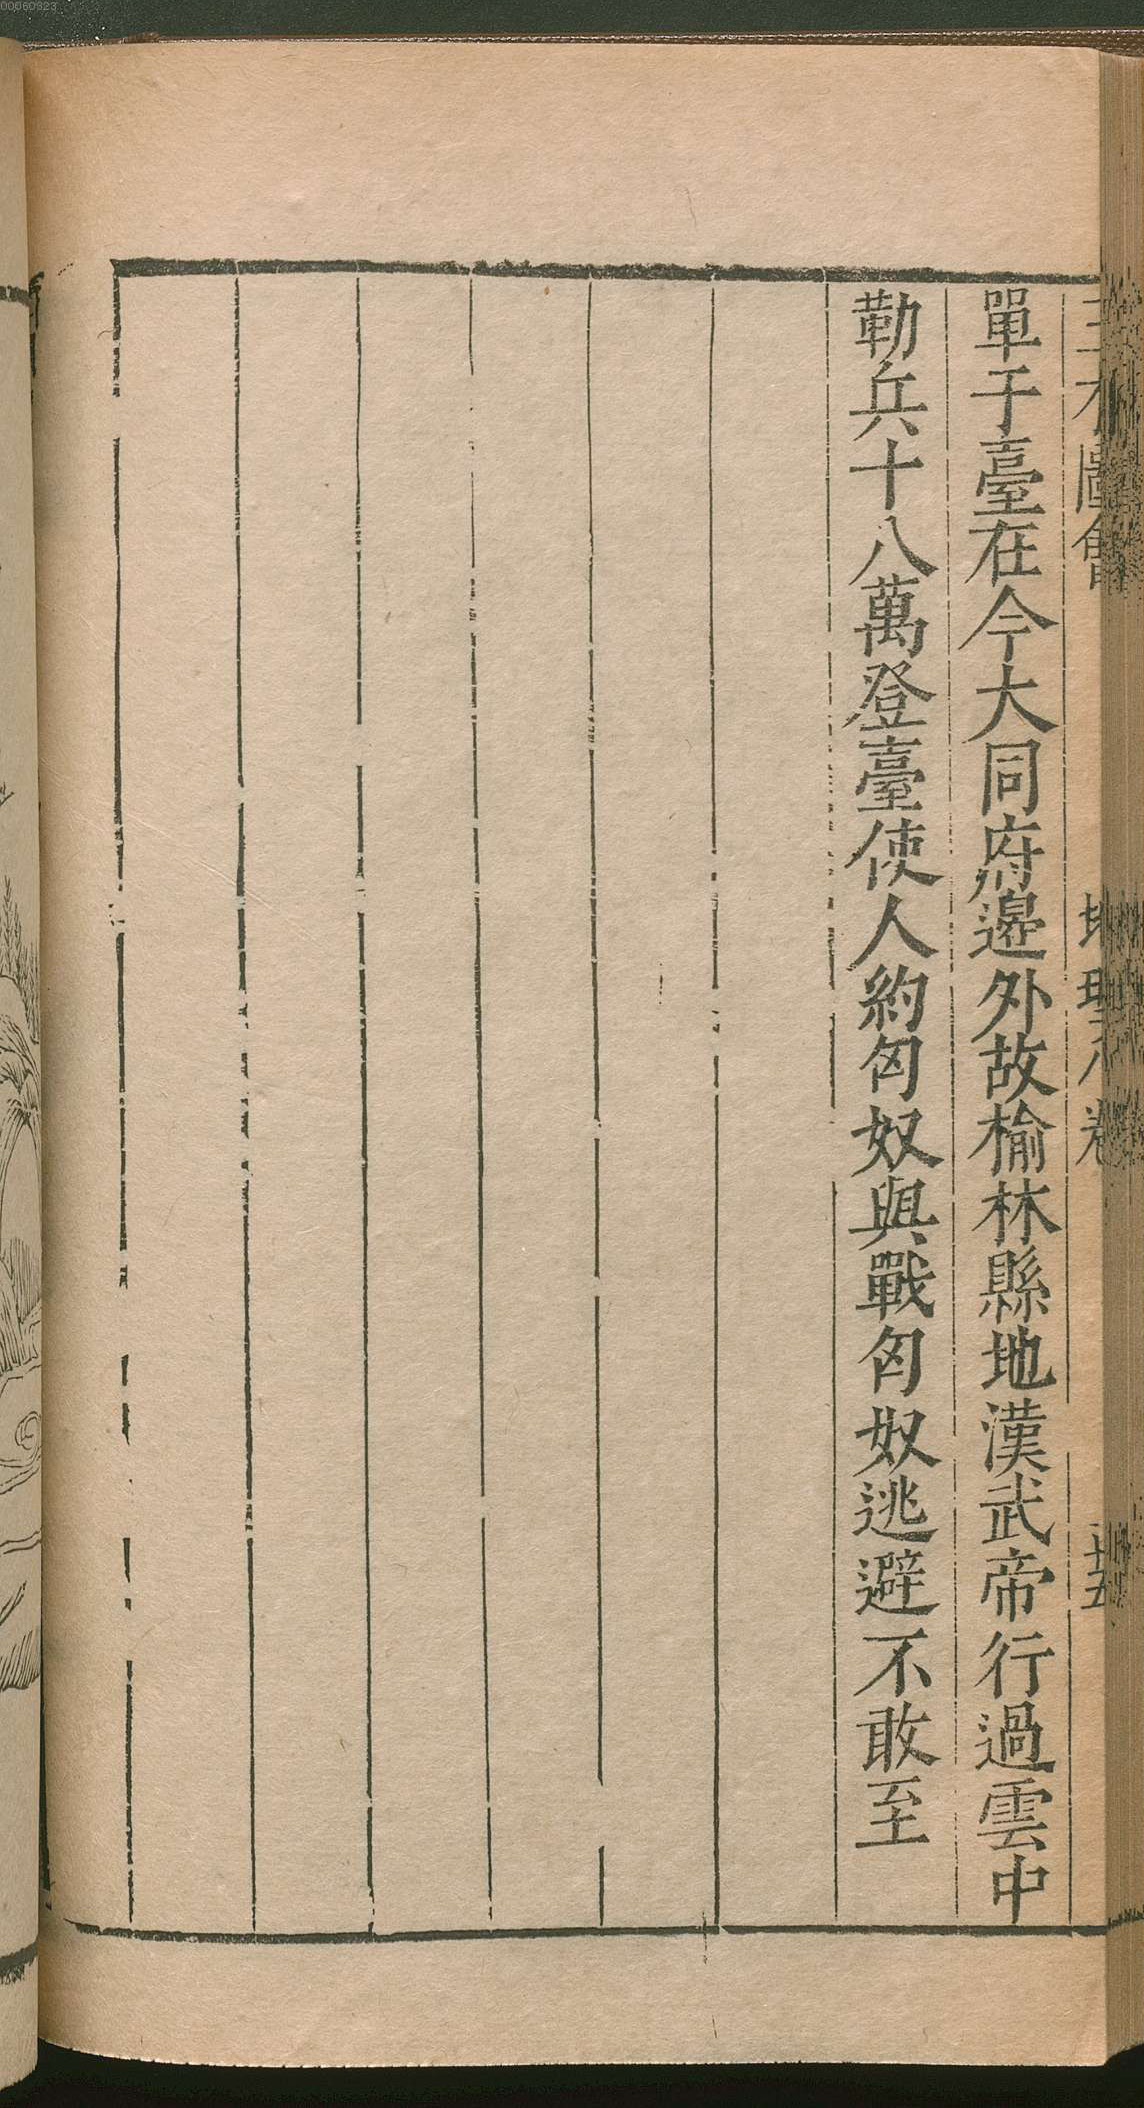 三才圖會 地理八卷 十五
單于臺在今大同府邊外故榆林縣地漢武帝行過雲中
勒兵十八萬登臺使人約匈奴與戰匈奴逃避不敢至
00060923